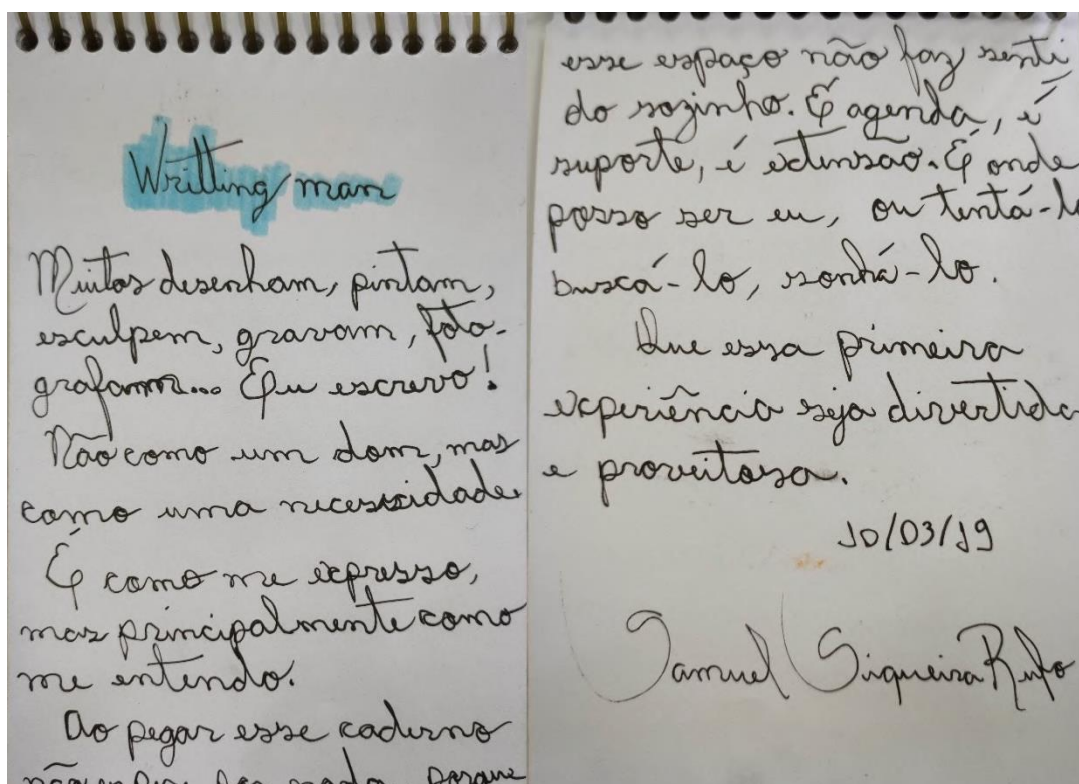 Writting man
Muitos desenham, pintam,
esculpem, gravam, foto-
grafam... Eu escrevo!
Não como um dom, mas
como uma necessidade.
É como me expresso,
mas principalmente como
me entendo.
Ao pegar esse caderno
nada porque
esse espaço não faz senti
do sozinho. É agenda, é
suporte, é extensão. É onde
posso ser eu, ou tentá-lo
buscá-lo, sonhá-lo.
Que essa primeira
experiência seja divertida
e proveitosa.
10/03/19
Samuel Siqueira Rufo